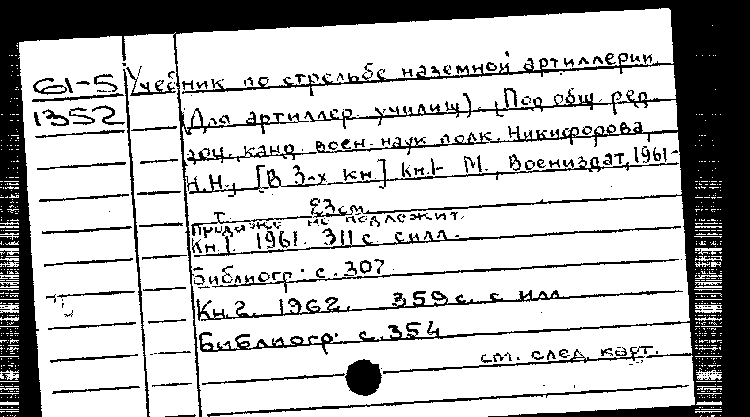 61-5 Учебник по стрельбе наземной артиллерии
1352 (Для артиллер. училищ). [Под общ. ред.
доц. канд. воен. наук полк. Никифорова,
Н.Н.] [В 3-х кн.] Кн.1- М., Воениздат, 1961-
т. 23 см.
Продаже не подлежит.
Кн.1. 1961. 311 с. с илл.
Библиогр: с. 307
Кн.2. 1962. 359 с. с илл
Библиогр: с. 354
см. след. карт.